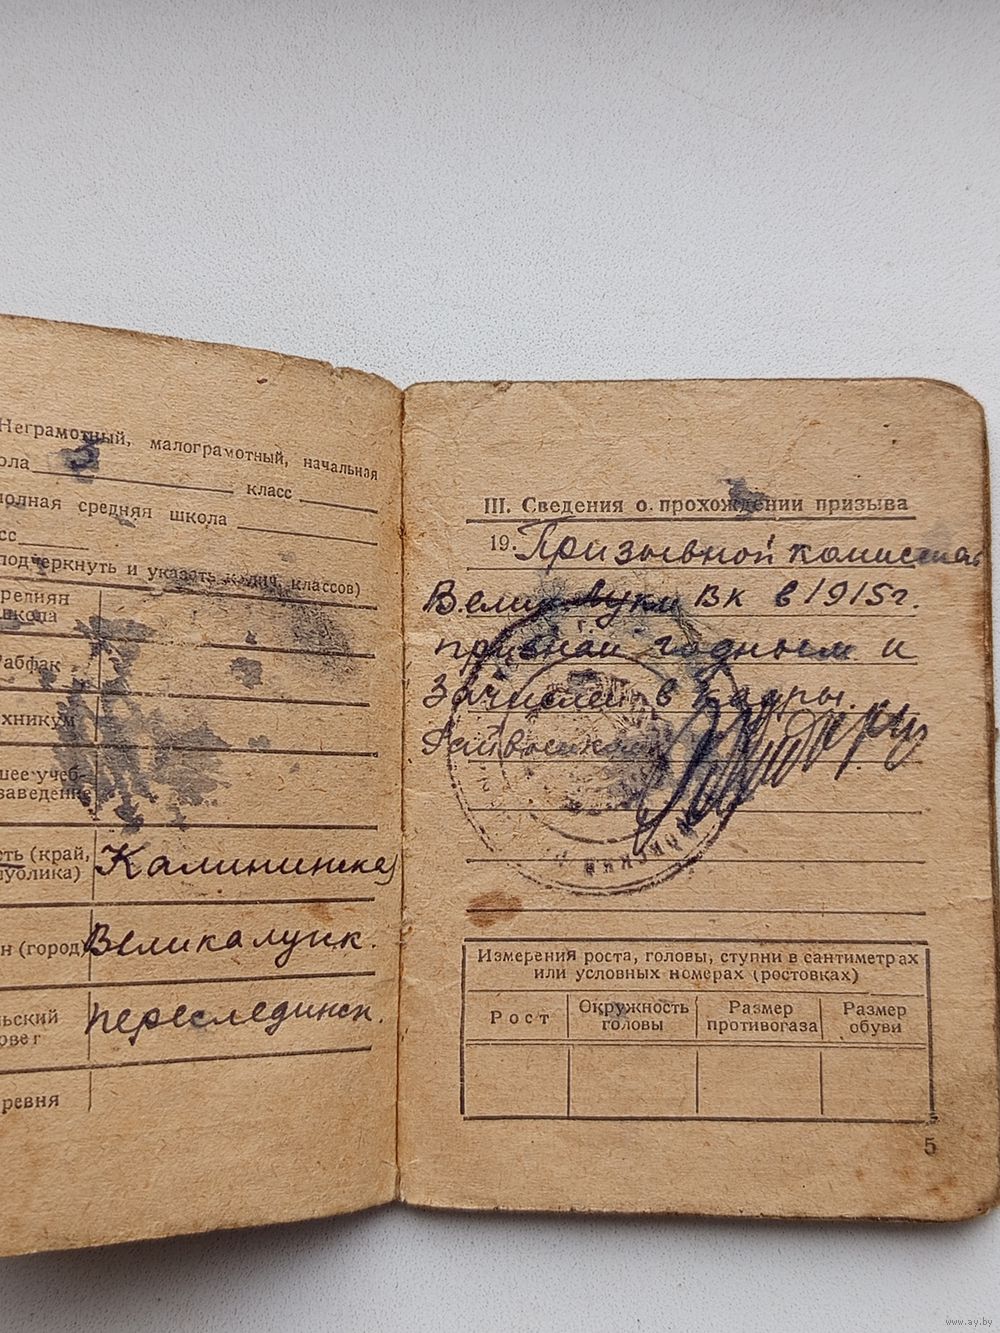 Неграмотный, малограмотный, начальная
ола 5 класс
полная средняя школа
сс
подчеркнуть и указать колич. классов)
редняя
школа
Рабфак
хникум
шее учеб-
заведение
сть (край,
публика) Калининская
н (город) Великалукк.
льский
овет переслединск.
ревня
III. Сведения о прохождении призыва
19. Призывной комиссией
Велик луки ВК в 1915г.
признан годным и
зачислен в кадры.
Райвоенком
Измерения роста, головы, ступни в сантиметрах
или условных номерах (ростовках)
Рост
Окружность
головы
Размер
противогаза
Размер
обуви
5
www.ay.by